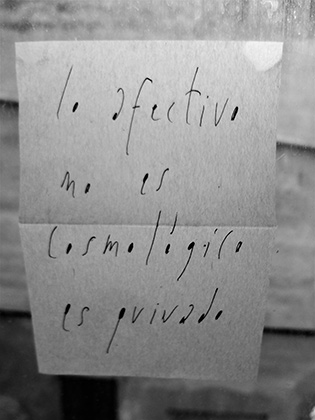 lo afectivo
no es
cosmológico
es privado